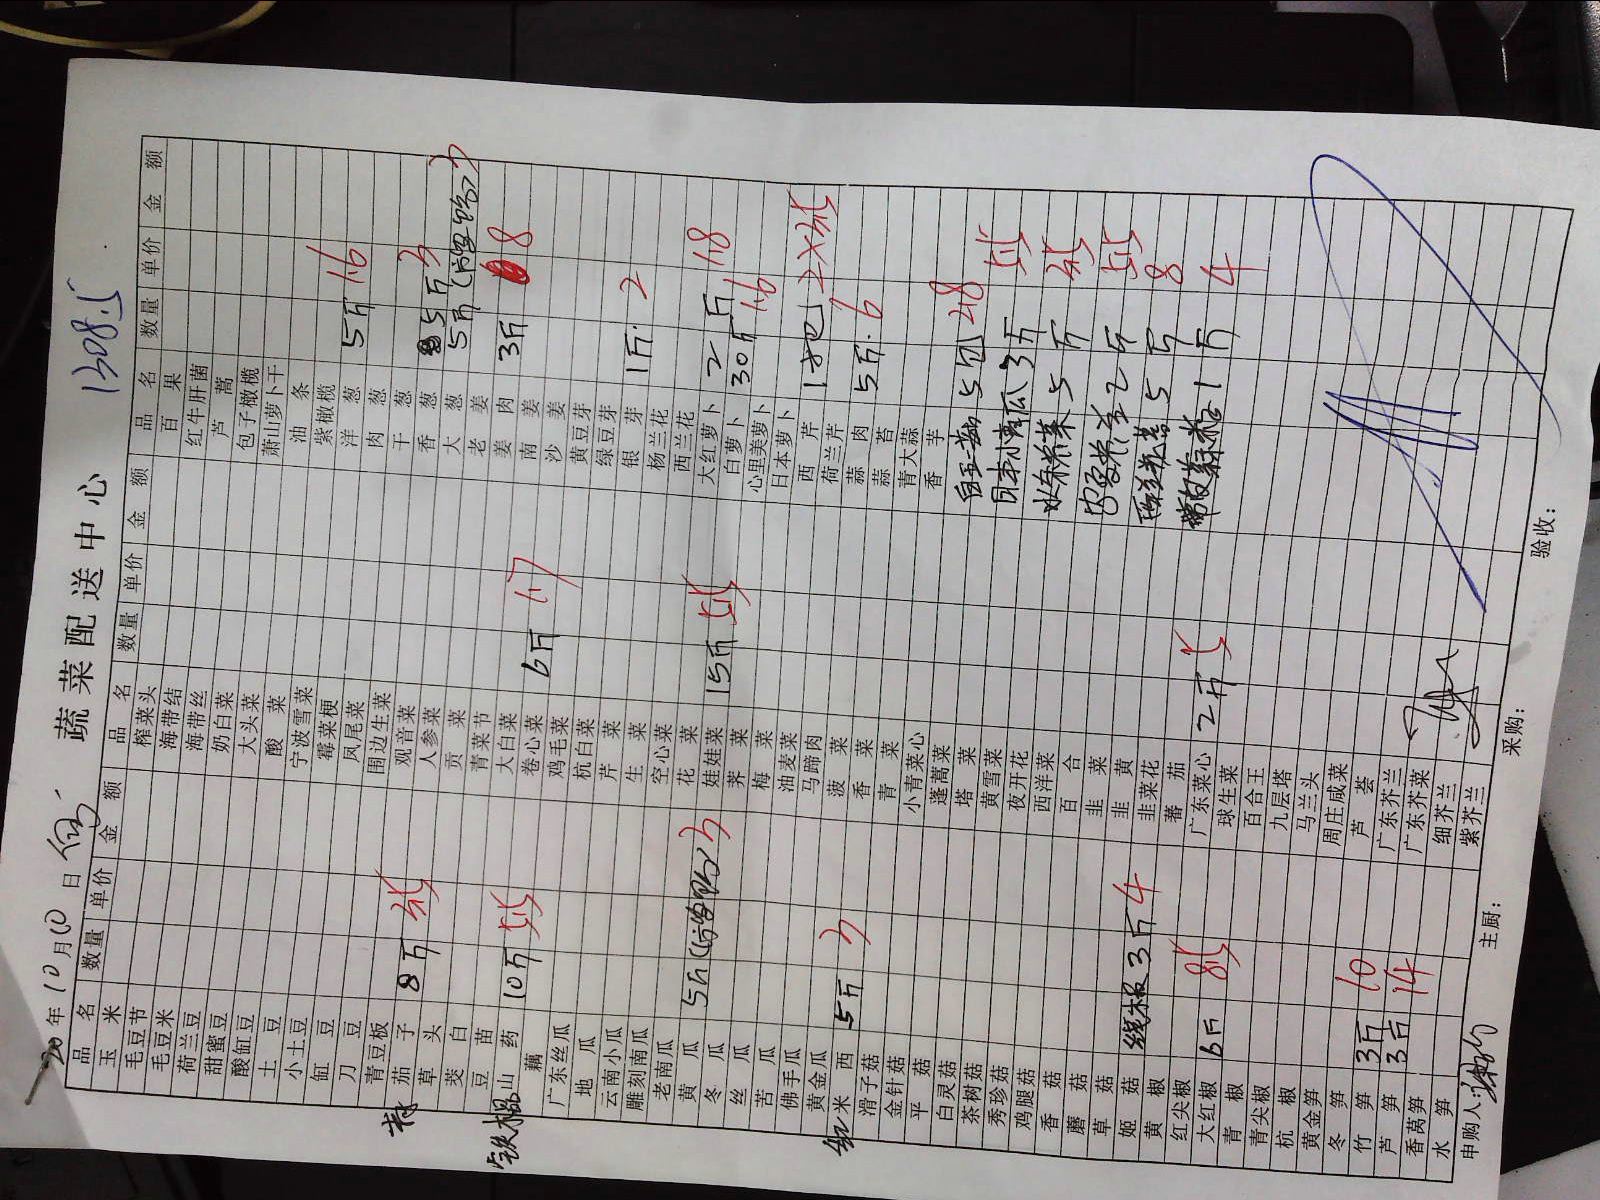 蔬菜配送中心
1308.5
20 年 10 月 10 日
品名 数量 单价 金额 品名 数量 单价 金额 品名 数量 单价 金额
玉米 榨菜头 百果
毛豆节 海带结 红牛肝菌
毛豆米 海带丝 芦蒿
荷兰豆 奶白菜 包子橄榄
甜蜜豆 大头菜 萧山萝卜干
酸缸豆 酸菜 油条
土豆 宁波雪菜 紫橄榄
小土豆 霉菜梗 洋葱 5斤 1.6
缸豆 凤尾菜 肉葱
刀豆 围边生菜 干葱
青豆板 观音菜 香葱 5斤 3
茄子 8斤 人参菜 大葱 5斤 3
草头 贡菜 老姜
茭白 青菜节 姜肉 3斤 8
豆苗 大白菜 南姜
铁棍山药 10斤 卷心菜 6斤 1.7 沙姜
藕 鸡毛菜 黄豆芽
广东丝瓜 杭白菜 绿豆芽
地瓜 芹菜 银芽 1斤 2
云南小瓜 生菜 杨兰花
雕刻南瓜 空心菜 西兰花
老南瓜 花菜 大红萝卜 2斤 1.8
黄瓜 5斤 3 娃娃菜 15斤 白萝卜 30斤 1.6
冬瓜 荠菜 心里美萝卜
丝瓜 梅菜 日本萝卜
苦瓜 油麦菜 西芹
佛手瓜 马蹄肉 荷兰芹 1把
黄金瓜 菠菜 蒜肉 5斤 6
红米西 5斤 3 香菜 蒜苔
滑子菇 青菜 青大蒜
金针菇 小青菜心 香芋
平菇 蓬蒿菜
白灵菇 塔菜 5包 2.8
茶树菇 黄雪菜 日本小青瓜 3斤
秀珍菇 夜开花
鸡腿菇 西洋菜 5斤
香菇 百合
蘑菇 韭菜 2斤
草菇 韭黄
姬菇 线椒 3斤 4 韭菜花 5斤 8
黄椒 蕃茄
红尖椒 广东菜心 2斤 5 1斤 4
大红椒 6斤 球生菜
青椒 百合王
青尖椒 九层塔
杭椒 马兰头
黄金笋 周庄咸菜
冬笋 芦荟
竹笋 3斤 10 广东芥兰
芦笋 3斤 14 广东芥菜
香莴笋 细芥兰
水笋 紫芥兰
申购人： 主厨： 采购： 验收：